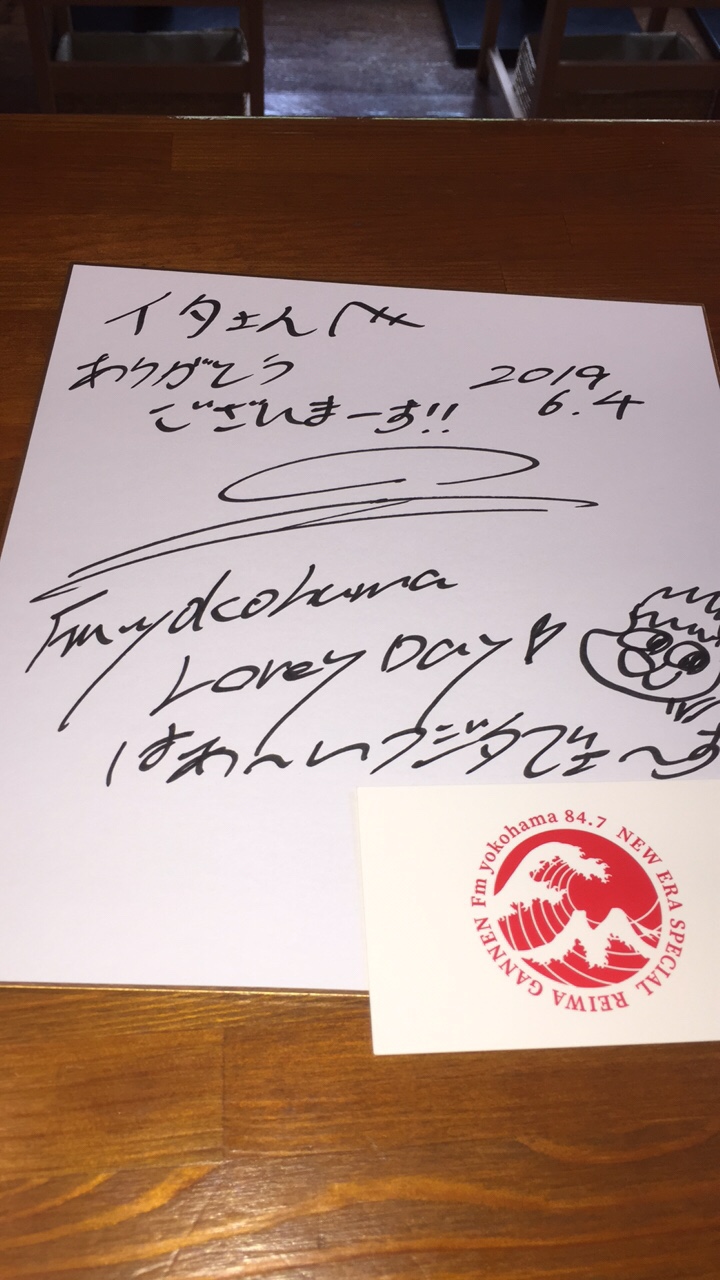 イタさん江
ありがとう
ございまーす!!
2019
6.4
Fmyokohama
Lovely Day♡
はぁ〜いフジタでぇ〜す
Fm yokohama 84.7 NEW ERA SPECIAL REIWA GANNEN